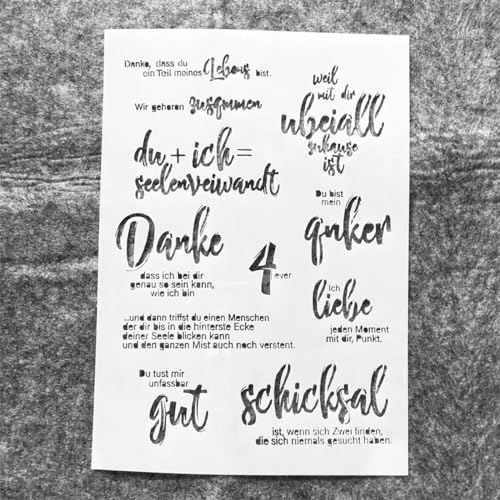 Danke, dass du
ein Teil meines Lebens bist.
Wir gehoren zusammen
weil
mit dir
ubeiall
zuhause
ist
du + ich =
seelenveiwandt
Du bist
mein
anker
Danke
dass ich bei dir
genau so sein kann,
wie ich bin
4 ever
Ich
liebe
jeden Moment
mit dir, Punkt.
...und dann triffst du einen Menschen
der dir bis in die hinterste Ecke
deiner Seele blicken kann
und den ganzen Mist auch noch verstent.
Du tust mir
unfassbar
gut
schicksal
ist, wenn sich Zwei finden,
die sich niemals gesucht haben.